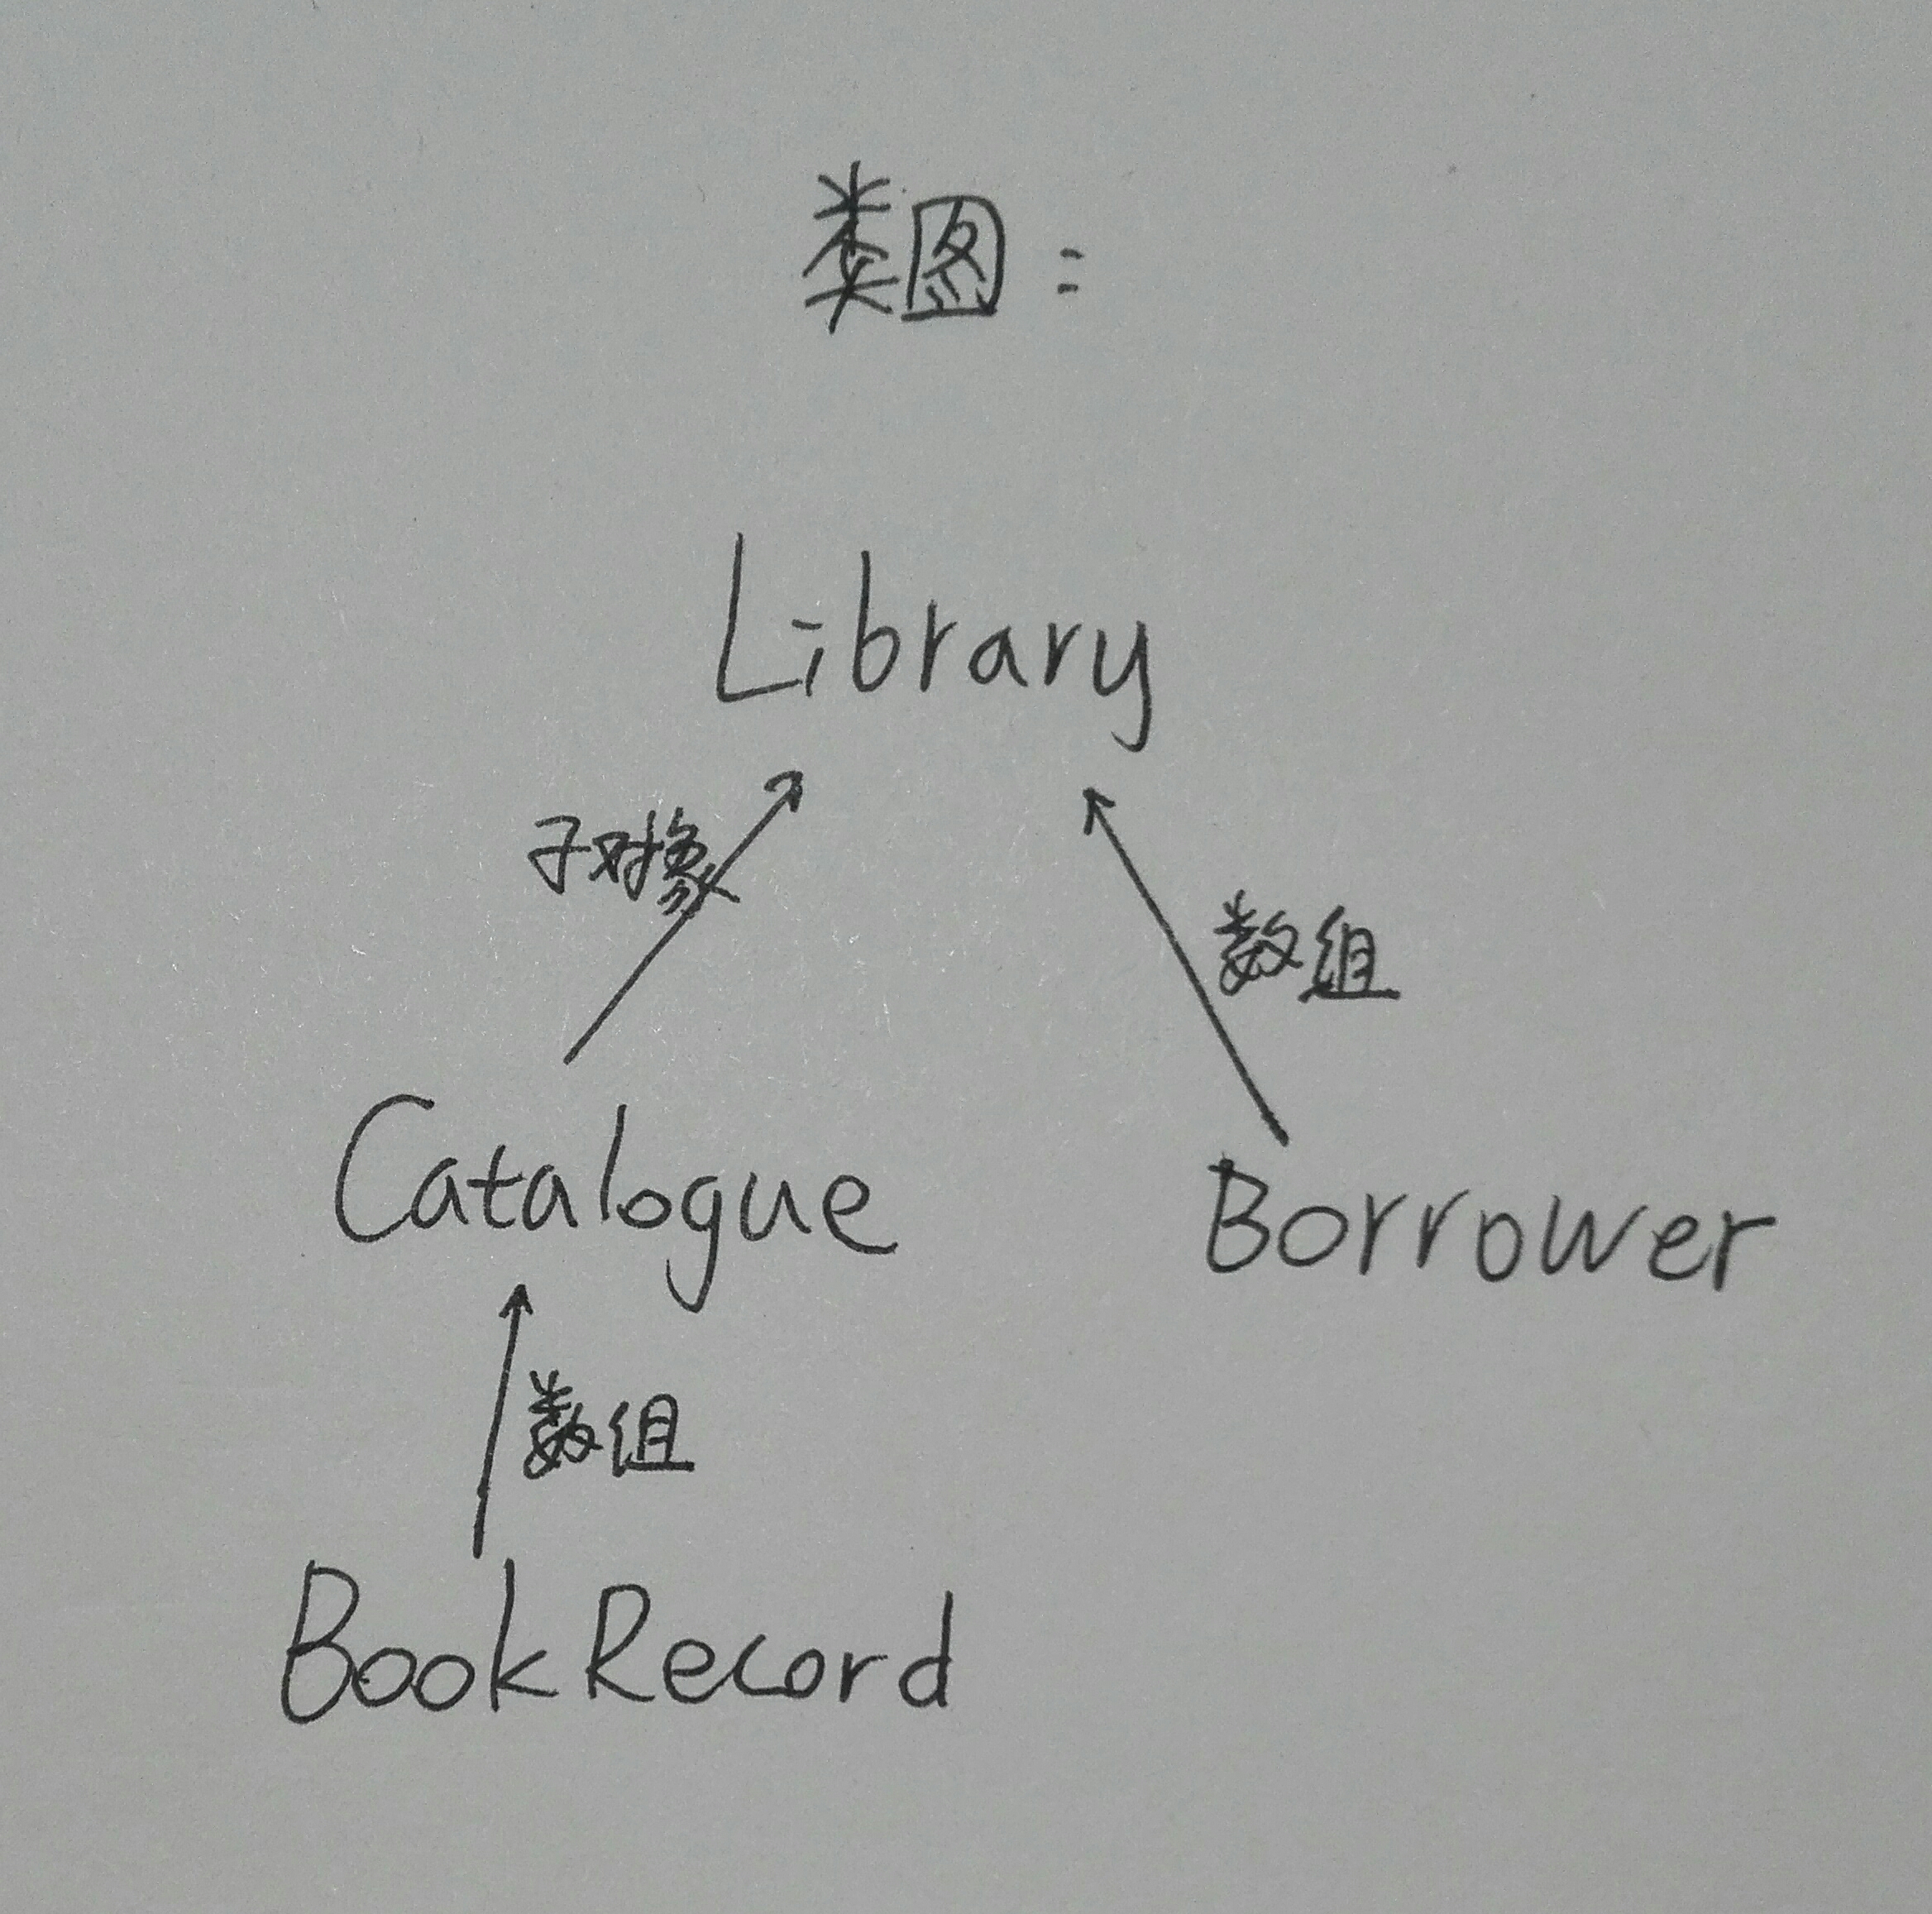 类图：
Library
子对象
数组
Catalogue
Borrower
数组
BookRecord